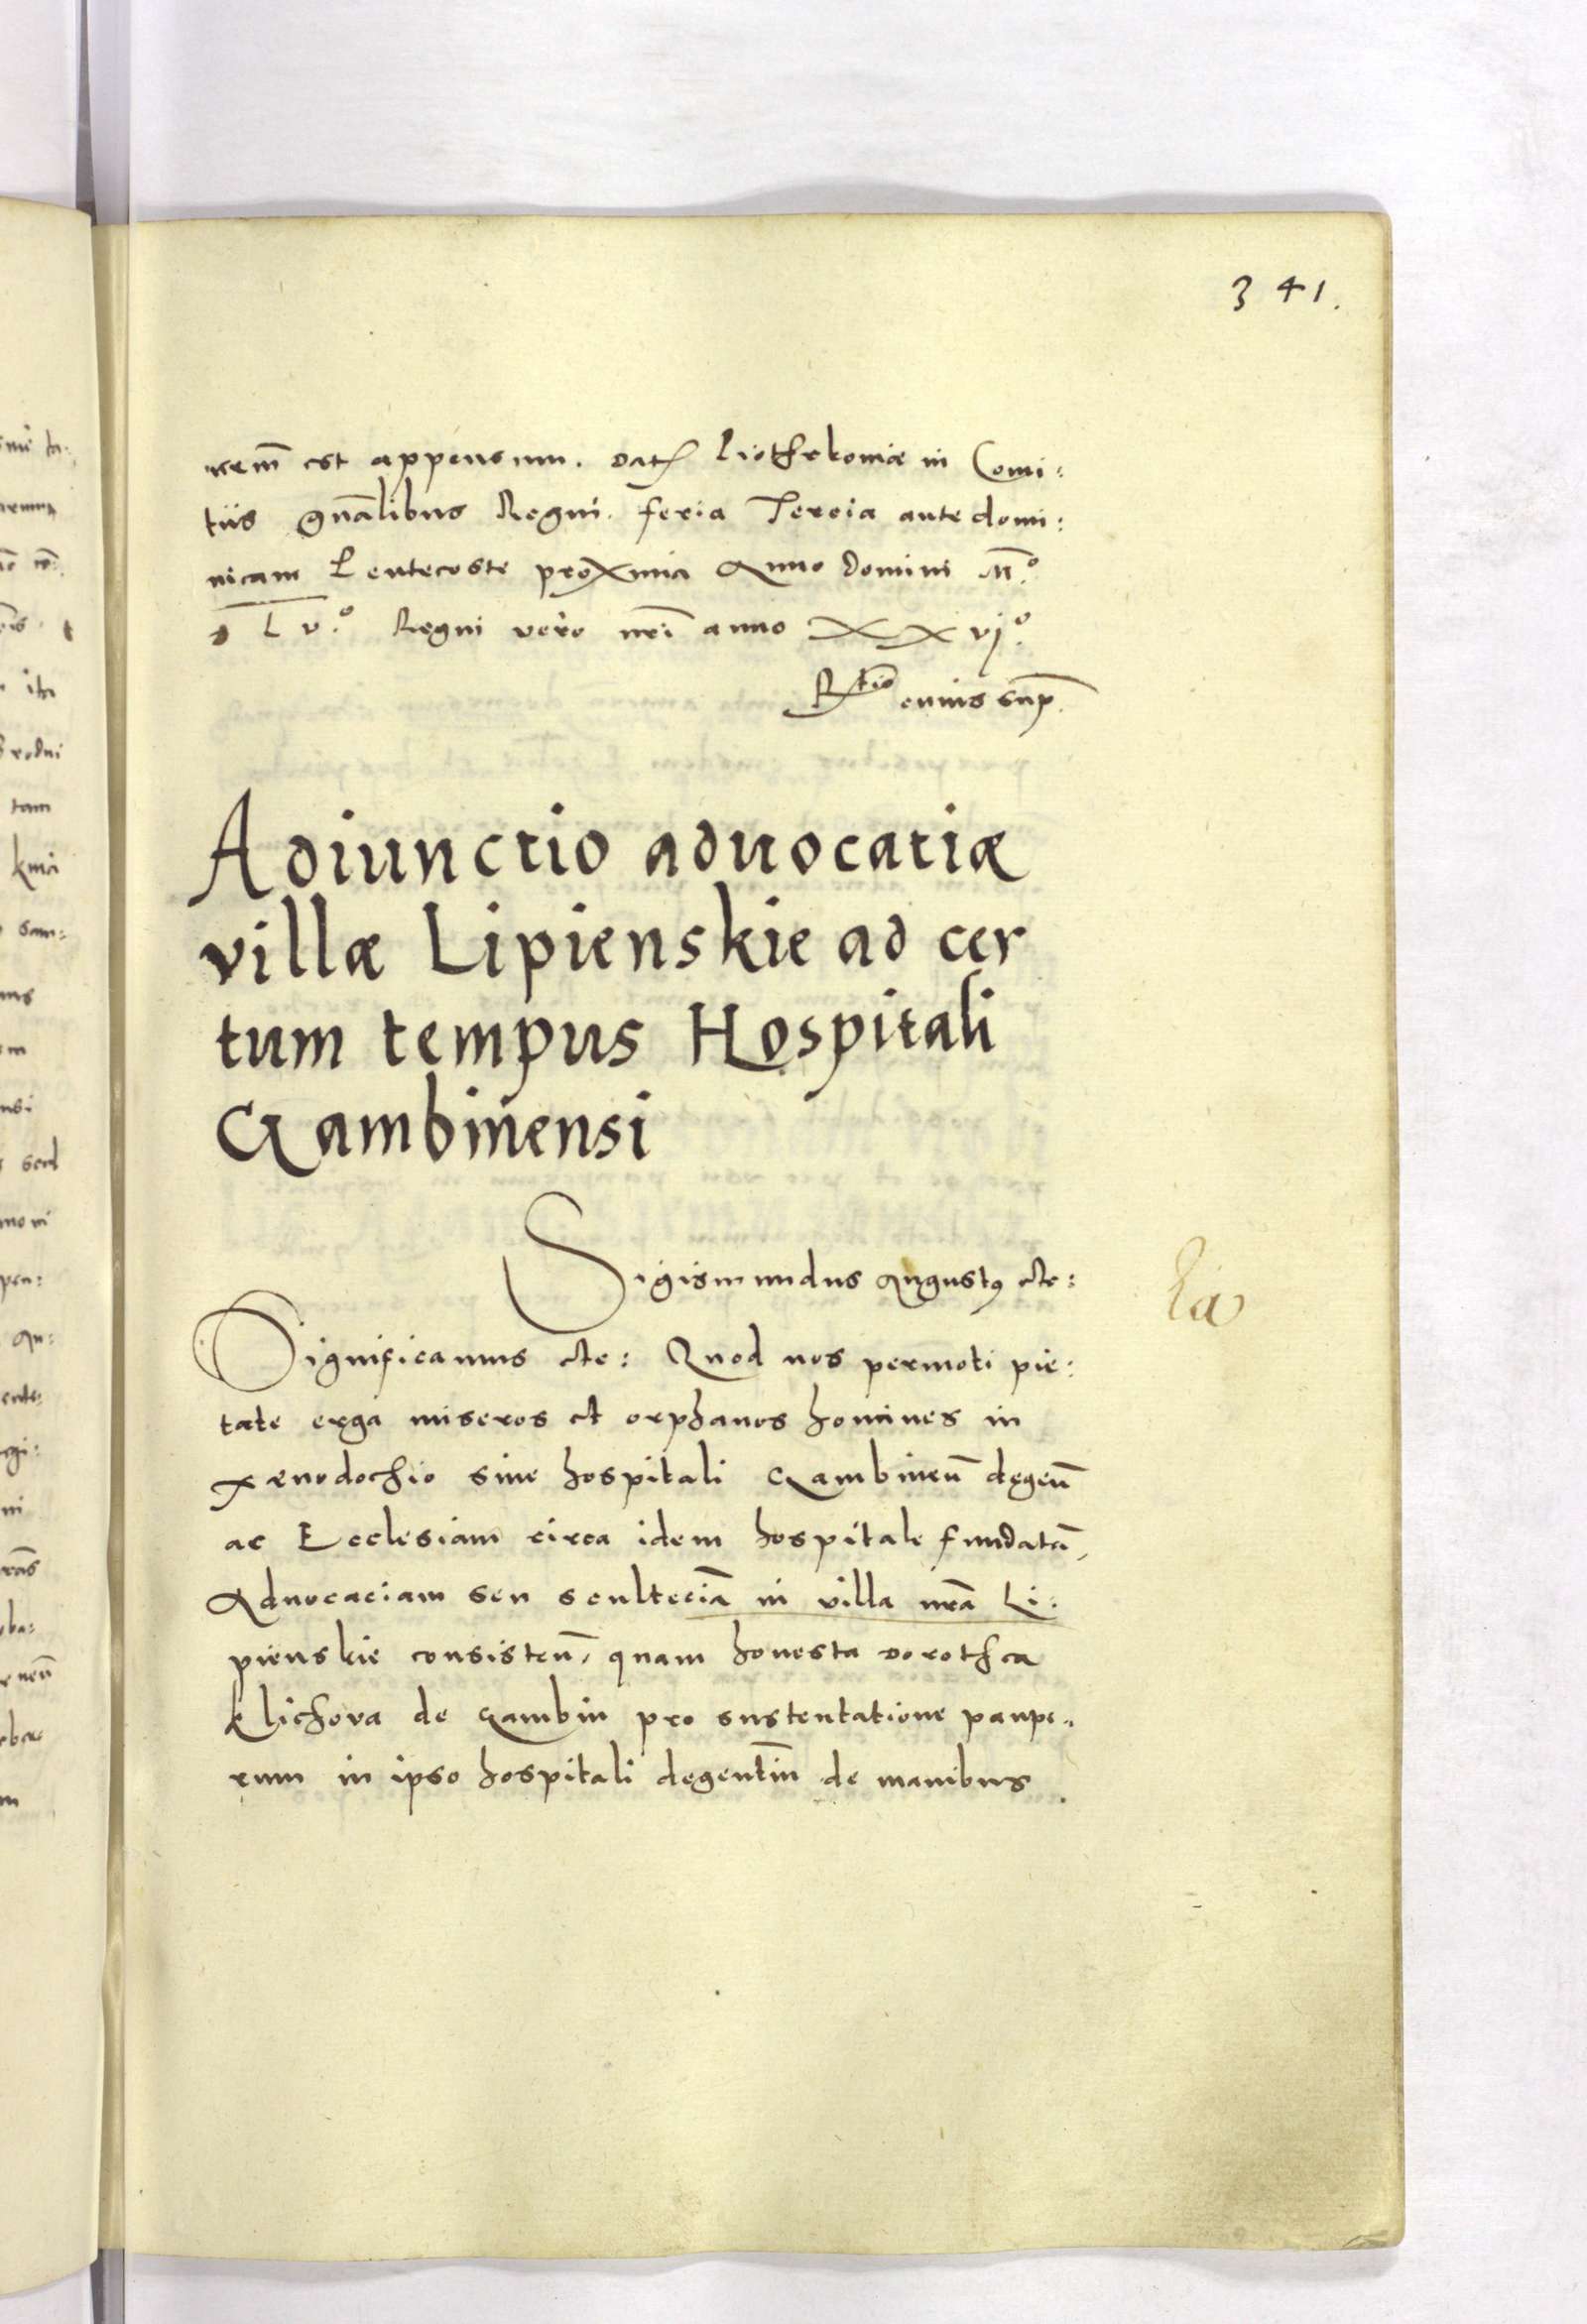 341.
rem̄ est appensum. Dat Piothrkoviæ in Comi:
tiis gn̄alibus Regni. feria Tercia ante domi:
nicam Pentecoste proxima Anno Domini M.º
D L v.º Regni vero nr̄i anno XXvj.º
R̄tio cuius sup̄
Adiunctio aduocatiæ
villæ Lipienskie ad cer
tum tempus Hospitali
Gambinensi
Sigismundus Augustꝰ etc:
Significamus etc: Quod nos permoti pie:
tate erga miseros et orphanos homines in
xenodochio siue hospitali Gambinen̄ degen̄
ac Ecclesiam circa idem hospitale fundatā,
Aduocaciam seu sculteciā in villa nr̄a Li:
pienskie consisten̄, quam honesta Dorothea
Klichova de Gambin pro sustentatione paupe:
rum in ipso hospitali degentiū de manibus